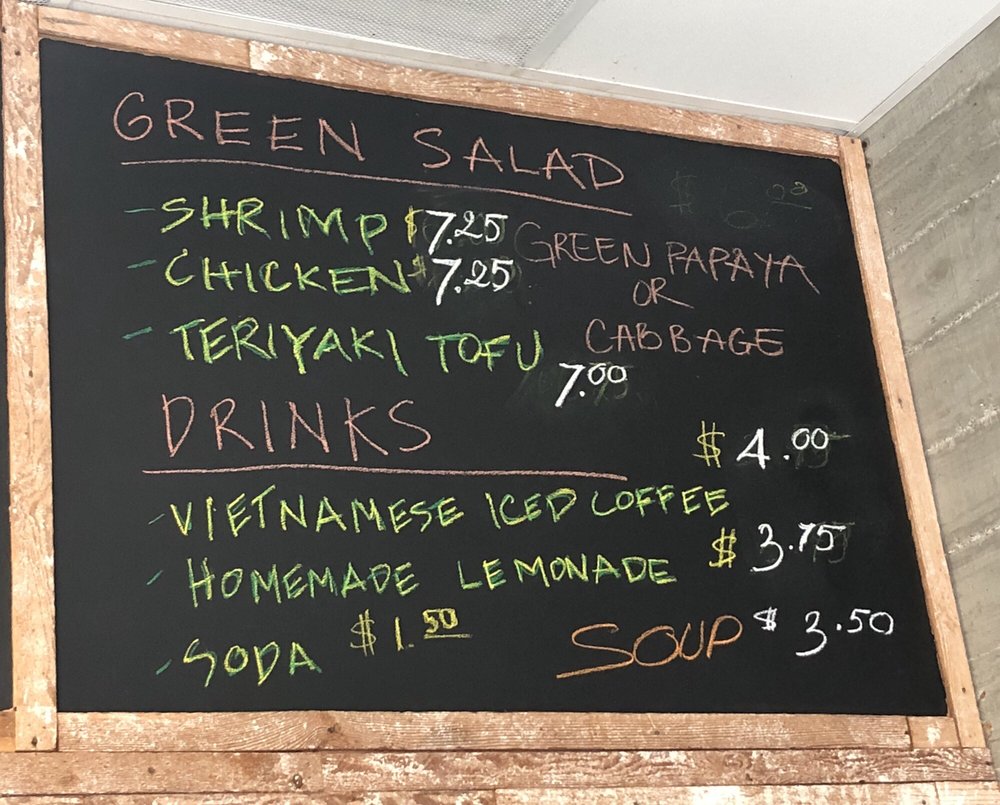 GREEN SALAD
- SHRIMP $7.25
- CHICKEN $7.25
GREEN PAPAYA
OR
CABBAGE
- TERIYAKI TOFU 7.00
DRINKS
- VIETNAMESE ICED COFFEE $4.00
- HOMEMADE LEMONADE $3.75
- SODA $1.50
SOUP $3.50